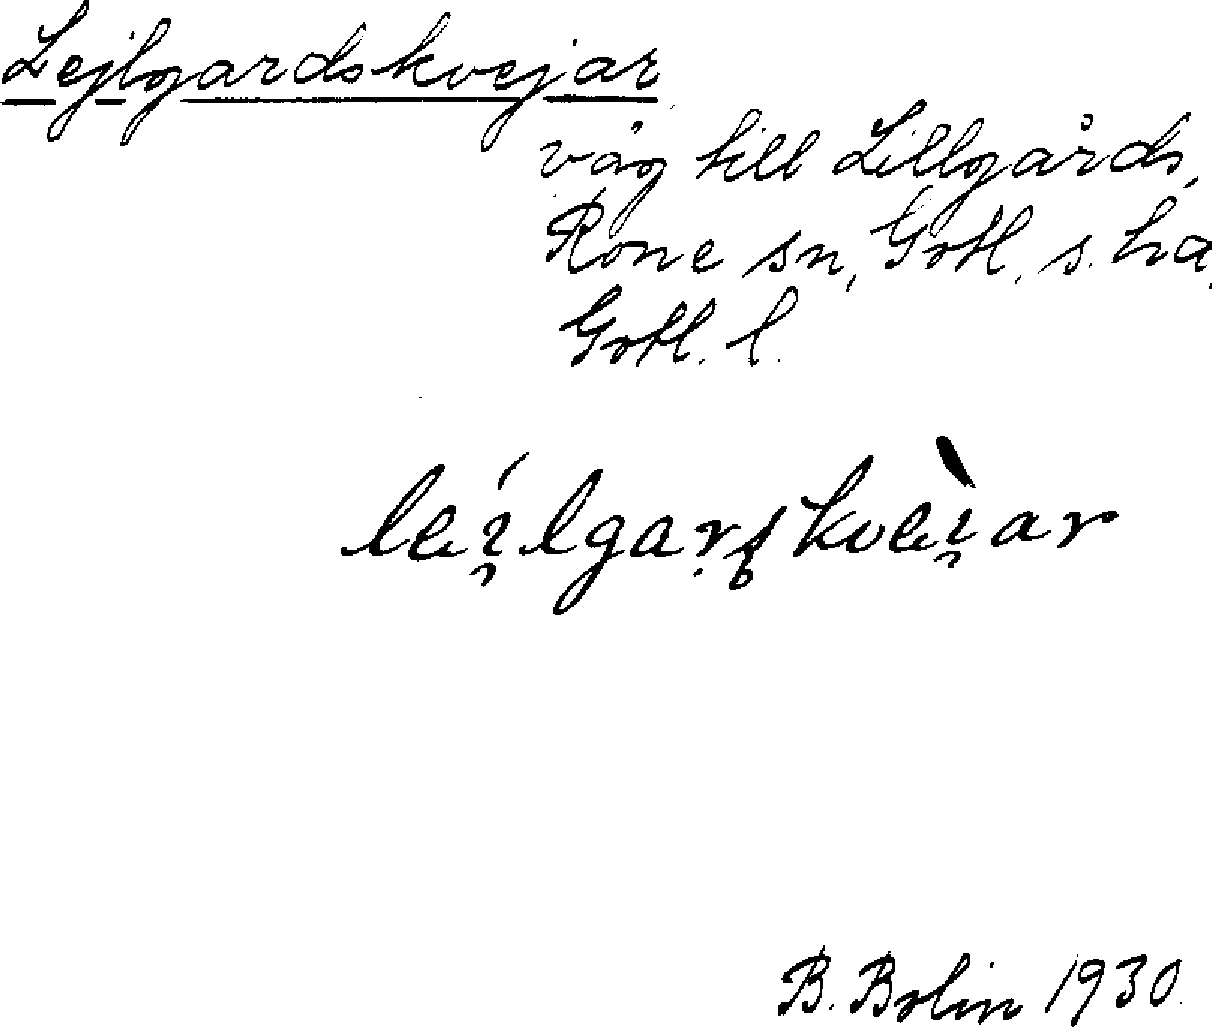 Lejlgardskvejar
väg till Lillgårds,
Rone sn, Gotl. s. hd,
Gotl. l.
lei̯lgarskvei̯ar
B. Bolin 1930.